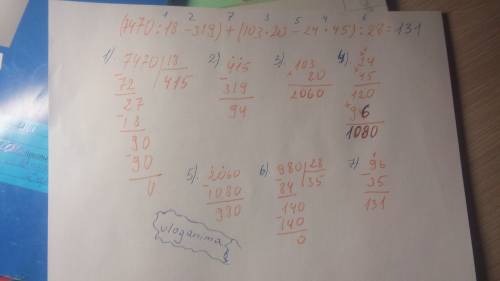 (7470 : 18 - 319) + (103 · 20 - 24 · 45) : 28 = 131
1) 7470 | 18
- 72 | 415
27
- 18
90
- 90
0
2) 415
- 319
94
3) 103
× 20
2060
4) 24
× 45
120
+ 96
1080
5) 2060
- 1080
980
6) 980 | 28
- 84 | 35
140
- 140
0
7) 96
35
131
vloganima